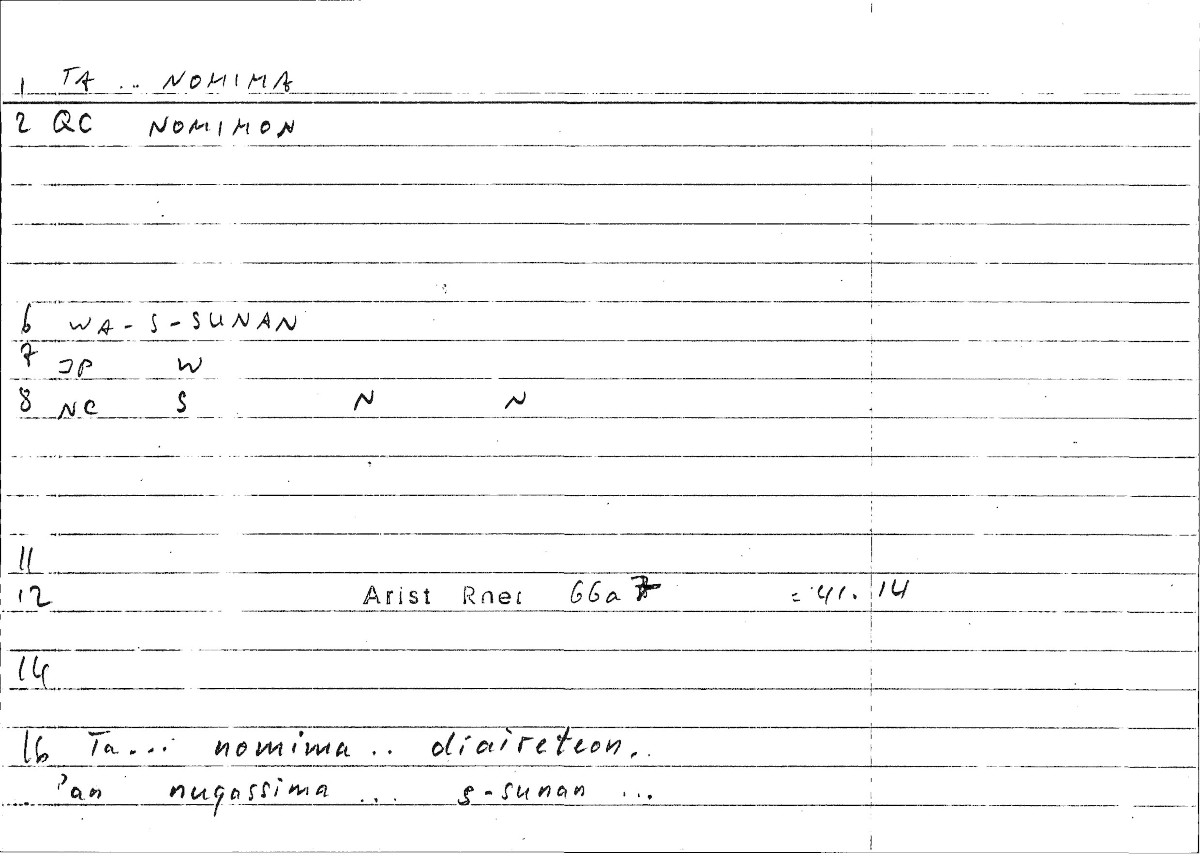 1 TA .. NOMIMA
2 QC NOMIMON
6 WA-S-SUNAN
7 JP W
8 NC S N N
11
12 Arist Rhet 66a7 = 41. 14
14
16 Ta... nomima .. diaireteon..
.. ʾan nuqassima ... s-sunan ...